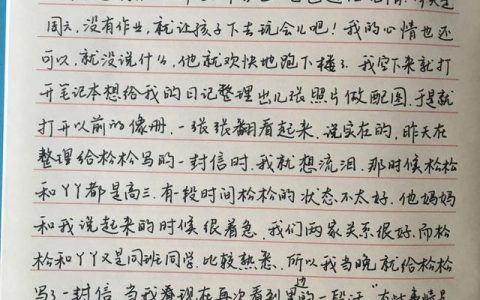 周六,没有作业,就让孩子下去玩会儿吧!我的心情也还
可以,就没说什么,他就欢快地跑下楼了。我空下来就打
开笔记本想给我的日记整理出几张照片做配图,于是就
打开以前的像册,一张张翻看起来,说实在的,昨天在
整理给松松写的一封信时,我就想流泪,那时候松松
和丫丫都是高三,有一段时间松松的状态不太好,他妈妈
和我说起来的时候很着急,我们两家关系很好,而松
松和丫丫又是同班同学,比较熟悉,所以我当晚就给松松
写了一封信,当我看现在再次看到里边的一段话